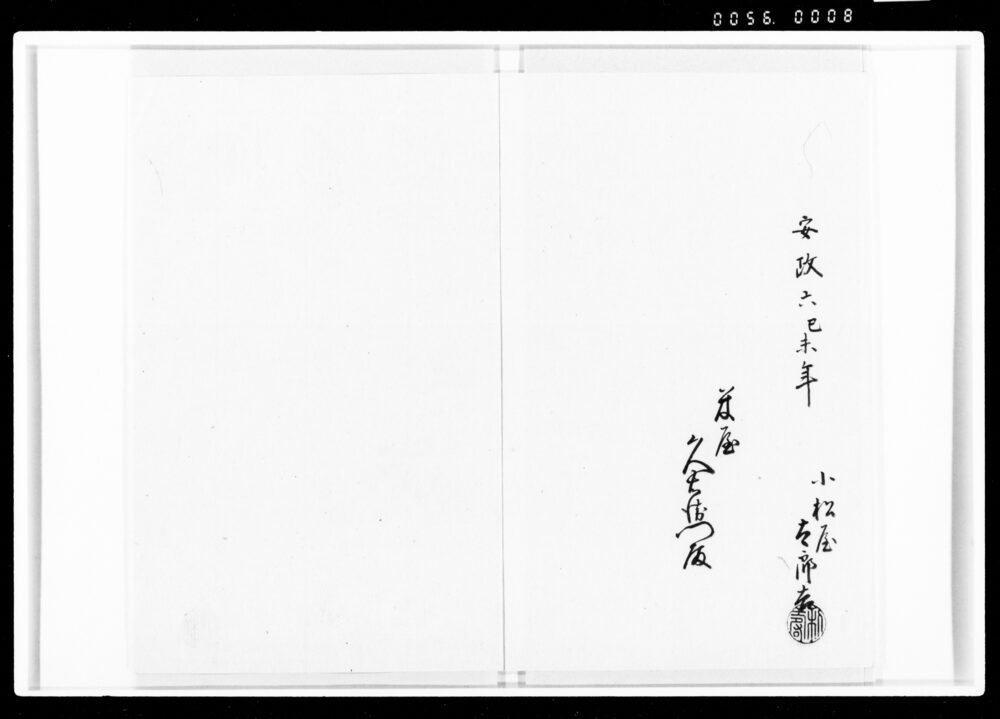 0056. 0008
安政六己未年
小松屋
吉郎
屋
久右衛門殿